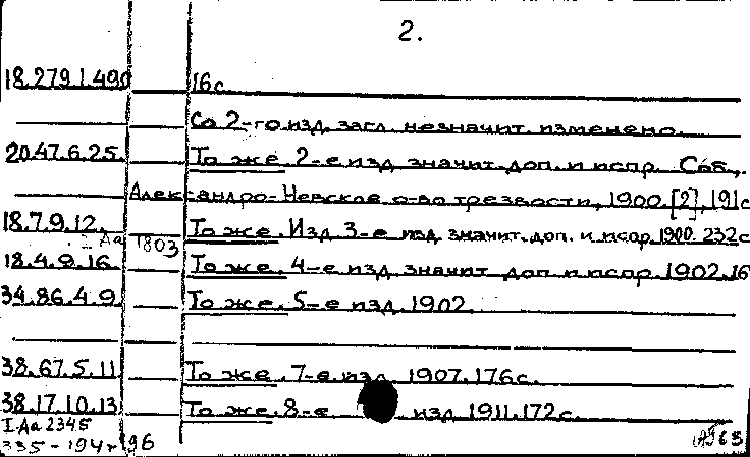 2.
18.279.1.490 16с.
Со 2-го изд. загл. незначит. изменено.
20.47.6.25. То же. 2-е изд. значит. доп. и испр. Спб.,
Александро-Невское о-во трезвости, 1900. [2], 191с
18.7.9.12. То же. Изд. 3-е изд. значит. доп. и испр. 1900. 232с
I Аа 1803
18.4.9.16. То же. 4-е изд. значит. доп. и испр. 1902. 16
34.86.4.9. То же. 5-е изд. 1902.
38.67.5.11 То же. 7-е изд. 1907. 176с.
38.17.10.13 То же. 8-е изд. 1911. 172с.
I Аа 2345
335-194 г 96